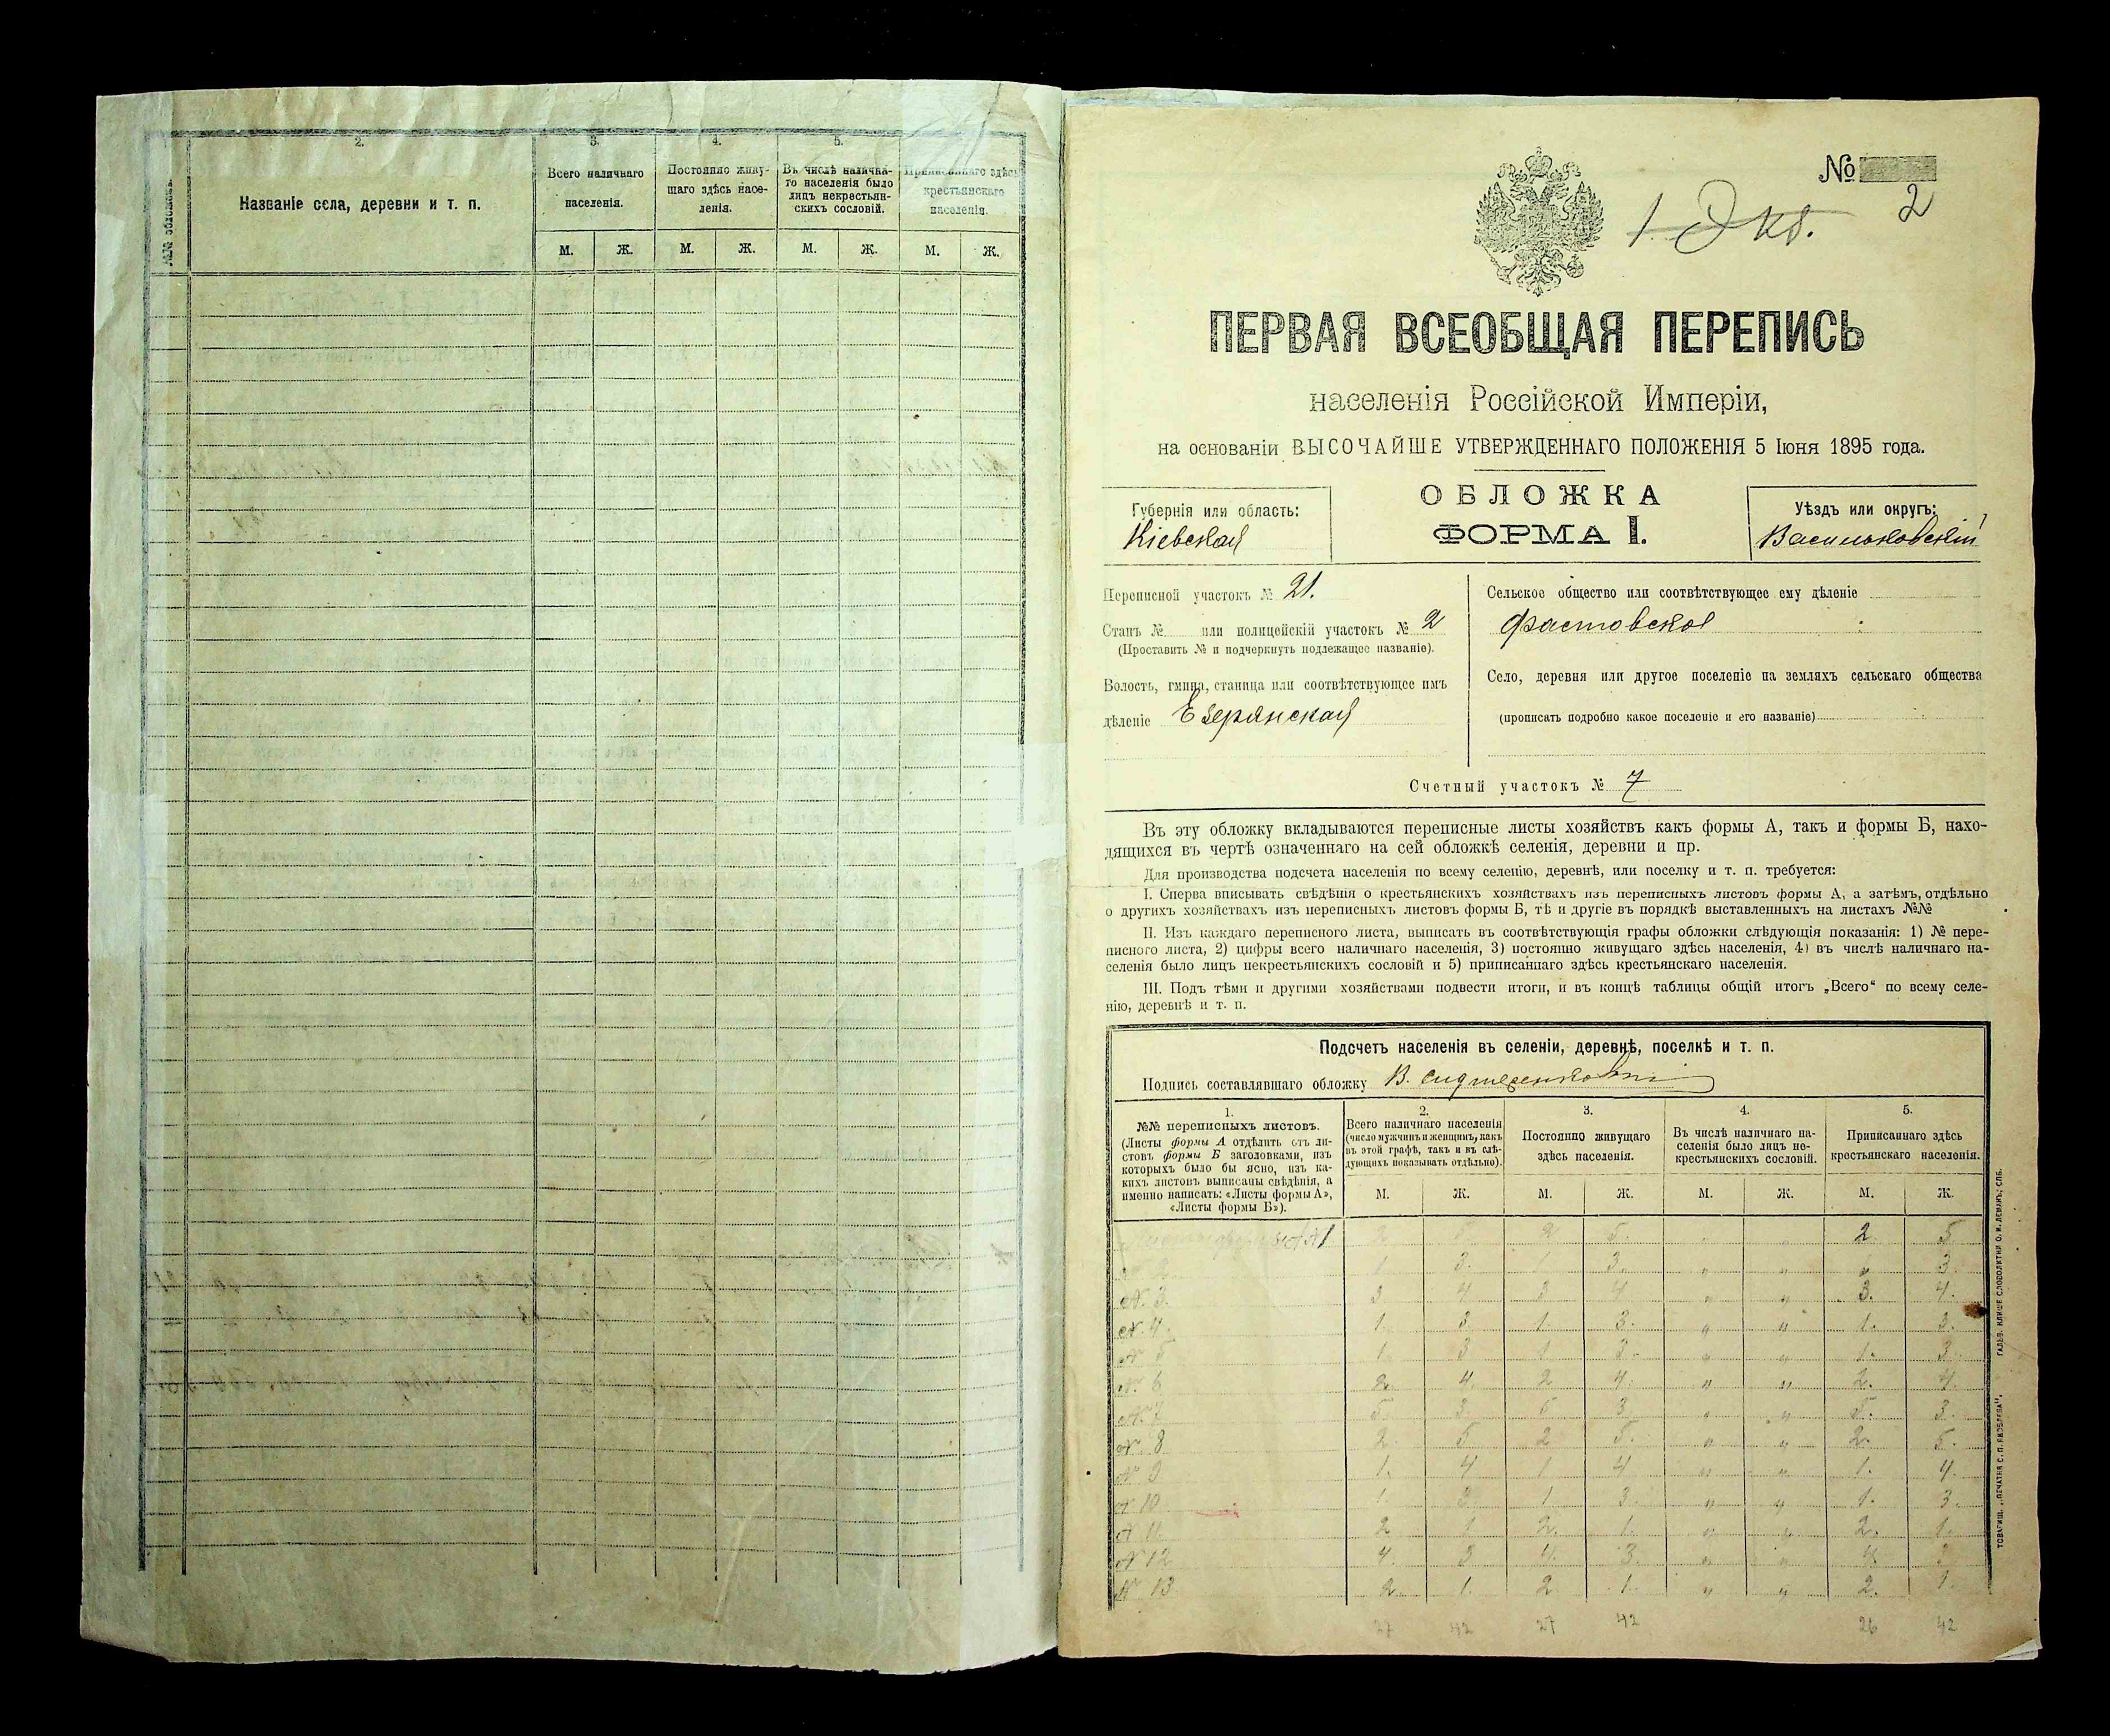 2.
3.
4.
5.
Названіе села, деревни и т. п.
Всего наличнаго
населенія.
Постоянно живу-
щаго здѣсь насе-
ленія.
Въ числѣ налична-
го населенія было
лицъ некрестьян-
скихъ сословій.
Приписаннаго здѣсь
крестьянскаго
населенія.
М. Ж. М. Ж. М. Ж. М. Ж.
№
2
ПЕРВАЯ ВСЕОБЩАЯ ПЕРЕПИСЬ
населенія Россійской Имперіи,
на основаніи ВЫСОЧАЙШЕ УТВЕРЖДЕННАГО ПОЛОЖЕНІЯ 5 Іюня 1895 года.
ОБЛОЖКА
ФОРМА I.
Губернія или область:
Кіевская
Уѣздъ или округъ:
Васильковскій
Переписной участокъ № 21.
Станъ № или полицейскій участокъ № 2
(Проставить № и подчеркнуть подлежащее названіе).
Волость, гмина, станица или соотвѣтствующее имъ
дѣленіе Езерянская
Сельское общество или соотвѣтствующее ему дѣленіе
Фастовское
Село, деревня или другое поселеніе на земляхъ сельскаго общества
(прописать подробно какое поселеніе и его названіе)
Счетный участокъ № 7
Въ эту обложку вкладываются переписные листы хозяйствъ какъ формы А, такъ и формы Б, нахо-
дящихся въ чертѣ означеннаго на сей обложкѣ селенія, деревни и пр.
Для производства подсчета населенія по всему селенію, деревнѣ, или поселку и т. п. требуется:
I. Сперва вписывать свѣдѣнія о крестьянскихъ хозяйствахъ изъ переписныхъ листовъ формы А, а затѣмъ, отдѣльно
о другихъ хозяйствахъ изъ переписныхъ листовъ формы Б, тѣ и другіе въ порядкѣ выставленныхъ на листахъ №№
II. Изъ каждаго переписного листа, выписать въ соотвѣтствующія графы обложки слѣдующія показанія: 1) № пере-
писного листа, 2) цифры всего наличнаго населенія, 3) постоянно живущаго здѣсь населенія, 4) въ числѣ наличнаго на-
селенія было лицъ некрестьянскихъ сословій и 5) приписаннаго здѣсь крестьянскаго населенія.
III. Подъ тѣми и другими хозяйствами подвести итоги, и въ концѣ таблицы общій итогъ „Всего“ по всему селе-
нію, деревнѣ и т. п.
Подсчетъ населенія въ селеніи, деревнѣ, поселкѣ и т. п.
Подпись составлявшаго обложку В.
1.
№№ переписныхъ листовъ.
(Листы формы А отдѣлить отъ ли-
стовъ формы Б заголовками, изъ
которыхъ было бы ясно, изъ ка-
кихъ листовъ выписаны свѣдѣнія, а
именно написать: «Листы формы А»,
«Листы формы Б»).
2.
Всего наличнаго населенія
(число мужчинъ и женщинъ, какъ
въ этой графѣ, такъ и въ слѣ-
дующихъ показывать отдѣльно).
3.
Постоянно живущаго
здѣсь населенія.
4.
Въ числѣ наличнаго на-
селенія было лицъ не-
крестьянскихъ сословій.
5.
Приписаннаго здѣсь
крестьянскаго населенія.
М. Ж. М. Ж. М. Ж. М. Ж.
№ 1 2 5 2 5. „ „ 2 5
№ 2 1 3. 1 3. „ „ „ 3
№ 3 3 4 3 4 „ „ 3. 4.
№ 4 1. 3. 1. 3. „ „ 1. 3.
№ 5 1. 3 1 3. „ „ 1. 3
№ 6 2. 4. 2 4. „ „ 2. 4.
№ 7 5. 3. 5 3 „ „ 5. 3.
№ 8 2. 5 2 5. „ „ 2. 5.
№ 9 1. 4 1 4 „ „ 1. 4.
№ 10 1. 3 1 3. „ „ 1. 3.
№ 11 2 1. 2. 1. „ „ 2. 1.
№ 12 4. 3 4. 3. „ „ 4. 3
№ 13 2. 1. 2 1. „ „ 2. 1.
27 42 27 42 26 42